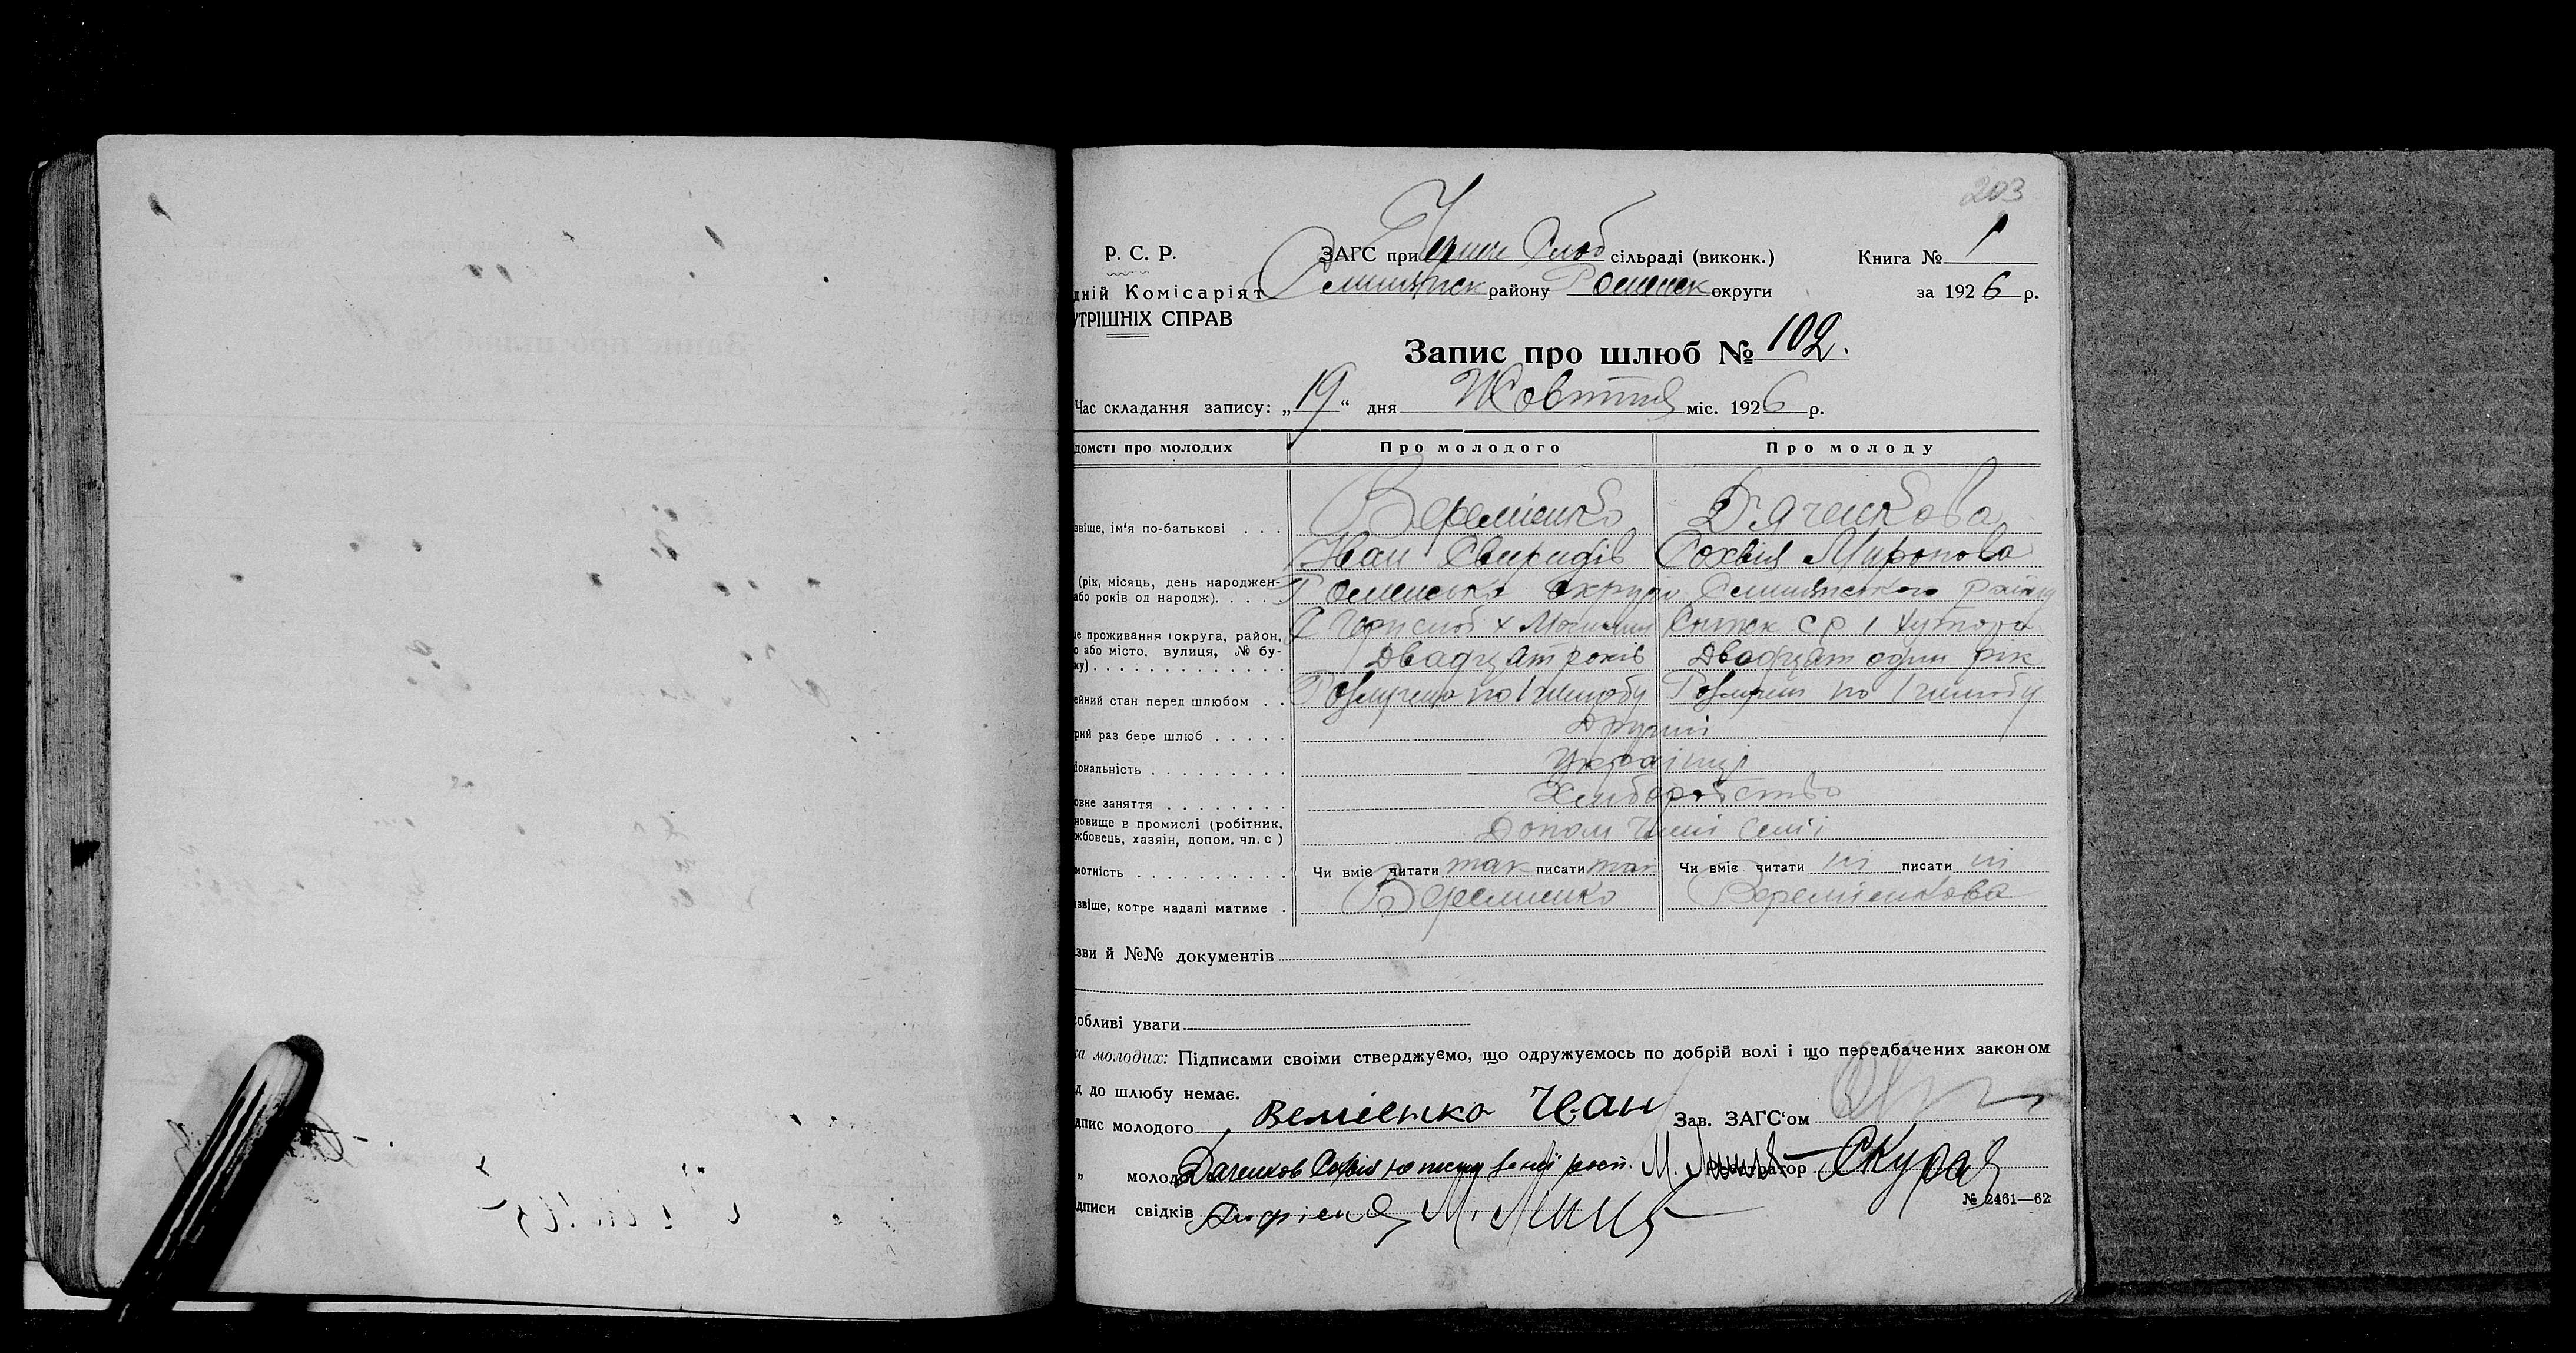 203
Р. С. Р. ЗАГС при Черн Слоб сільраді (виконк.) Книга № 1
дній Комісаріят району Роменск округи за 1926 р.
УТРІШНІХ СПРАВ
Запис про шлюб № 102.
Час складання запису: „19“ дня Жовтня міс. 1926 р.
домсті про молодих Про молодого Про молоду
звіще, ім'я по-батькові . . . Веремієнко Дяченкова
Іван Свиридів Сохвія Миронова
(рік, місяць, день народжен-
або років од народж). . . . Роменська округа району
це проживання (округа, район,
о або місто, вулиця, № бу-
ку) . . . . Двадцят років Двадцят один рік
ейний стан перед шлюбом . . по 1 шлюбу по 1 шлюбу
рий раз бере шлюб . . . . . Другий
іональність . . . . . . . . . Українці
овне заняття . . . . . . . . Хлиборобство
новище в промислі (робітник,
жбовець, хазяін, допом. чл. с ) Допом члени семі
мотність . . . . . . . . . . Чи вміє читати так писати так Чи вміє читати ні писати ні
звіще, котре надалі матиме . Веремиенко Веремиенкова
зви й №№ документів
собливі уваги
ка молодих: Підписами своіми стверджуємо, що одружуємось по добрій волі і що передбачених законом
д до шлюбу немає.
дпис молодого Вемієнко Іван Зав. ЗАГС'ом
„ молод Даченков Сохвія М. Реєстратор Скура
№ 2461—62
дписи свідків М.